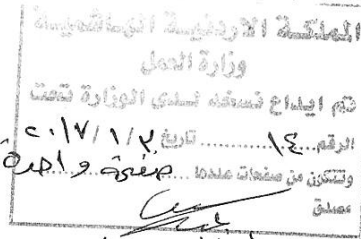 المملكة الاردنية الهاشمية
وزارة العمل
تم ايداع نسخه لدى الوزارة تحت
الرقم ....١٤.... تاريخ ٢٠١٧/١/٢
وتتكون من صفحات عددها ... صفحة واحدة
مصدق